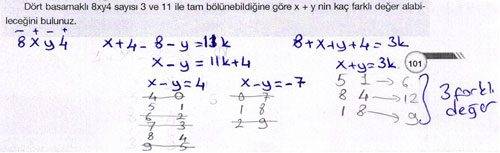 Dört basamaklı 8xy4 sayısı 3 ve 11 ile tam bölünebildiğine göre x + y nin kaç farklı değer alabi-
leceğini bulunuz.
- + - +
8 x y 4
x+4-8-y=11k
x-y=11k+4
x-y=4
4 0
5 1
6 2
7 3
8 4
9 5
x-y=-7
0 7
1 8
2 9
8+x+y+4=3k
x+y=3k.
101
5 1 → 6
8 4 → 12
1 8 → 9
3 farklı
değer